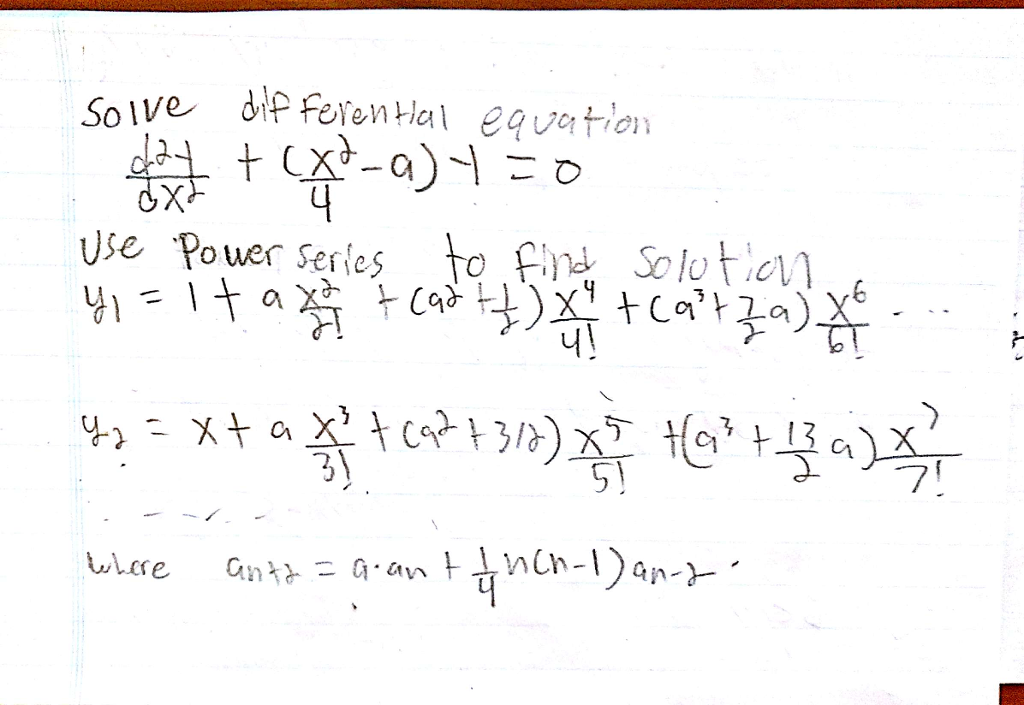 Solve differential equation
d²y/dx² + (x²/4 - a) y = 0
Use Power series to find solution
y₁ = 1 + a x²/2! + (a² + 1/2) x⁴/4! + (a³ + 7/2 a) x⁶/6! ....
y₂ = x + a x³/3! + (a² + 3/2) x⁵/5! + (a³ + 13/2 a) x⁷/7!
- - - -
where an+2 = a·an + 1/4 n(n-1) an-2.